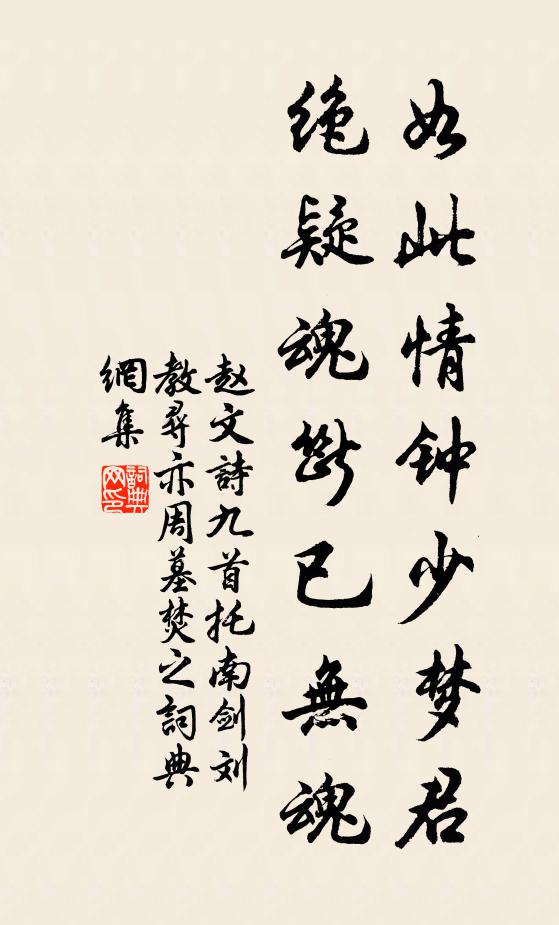 如此情钟少梦君
绝疑魂断已無魂
赵文詩九首托南剑刘
教尋亦周墓焚之詞典
網集
詞典
网印